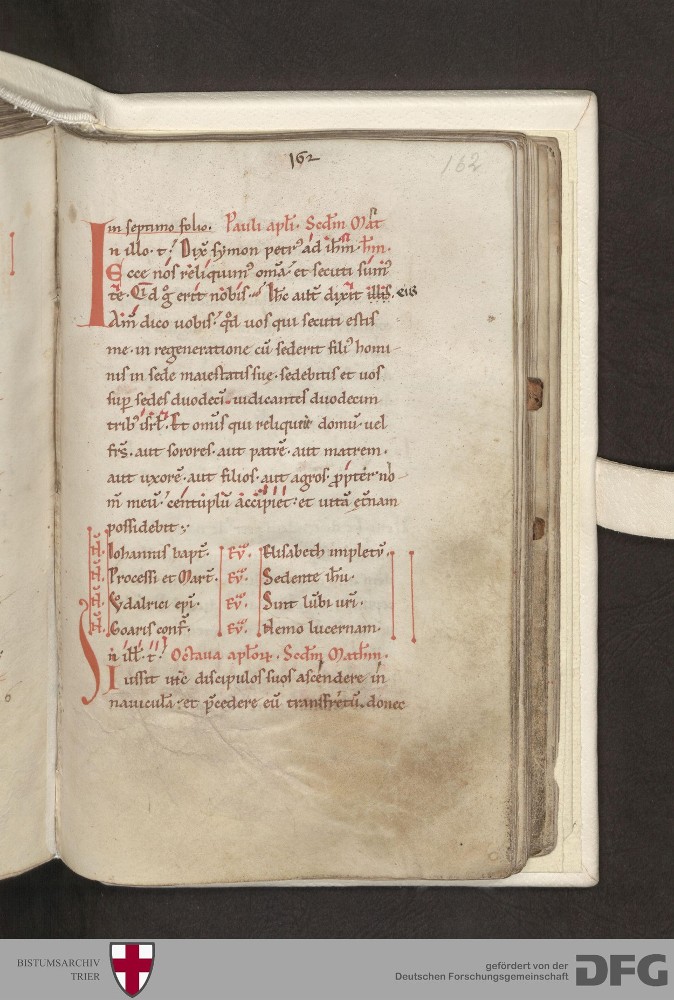 162
162
In septimo folio. Pauli apľi. Scďm Mať
n illo. t. Dix̄ symon petr᾽ ad ih̄m
Ecce nos reliquim᾽ om̄a. et secuti sum᾽
te. Qd g̊ erit nobis. Ih̄c aut̄ dixit illis. eis
Am̄ dico uobis. qđ uos qui secuti estis
me. in regeneratione cū sederit fili᾽ homi
nis in sede maiestatis sue. sedebitis et uos
sup sedes duodecī. iudicantes duodecim
trib᾽ isrł. Et omīs qui reliquerit domū. uel
frs̄. aut sorores. aut patrē. aut matrem.
aut uxorē. aut filios. aut agros. ꝓpter no
m̄ meū. centuplū accipiet. et uitā et̄nam
possidebit.
Iohannis bapt̄. Eṽ. Elisabeth impletū.
Processi et Mart̄. Eṽ. Sedente ih̄u.
Ǒdalrici ep̄i. Eṽ. Sint lūbi ur̄i.
Goaris conf̄. Eṽ. Nemo lucernam.
In ill̄. t. Octaua apľoꝝ. Scďm Math̄m.
Iussit ih̄c discipulos suos ascendere in
nauiculā. et p̄cedere eū transfretū. donec
BISTUMSARCHIV
TRIER
gefördert von der
Deutschen Forschungsgemeinschaft
DFG